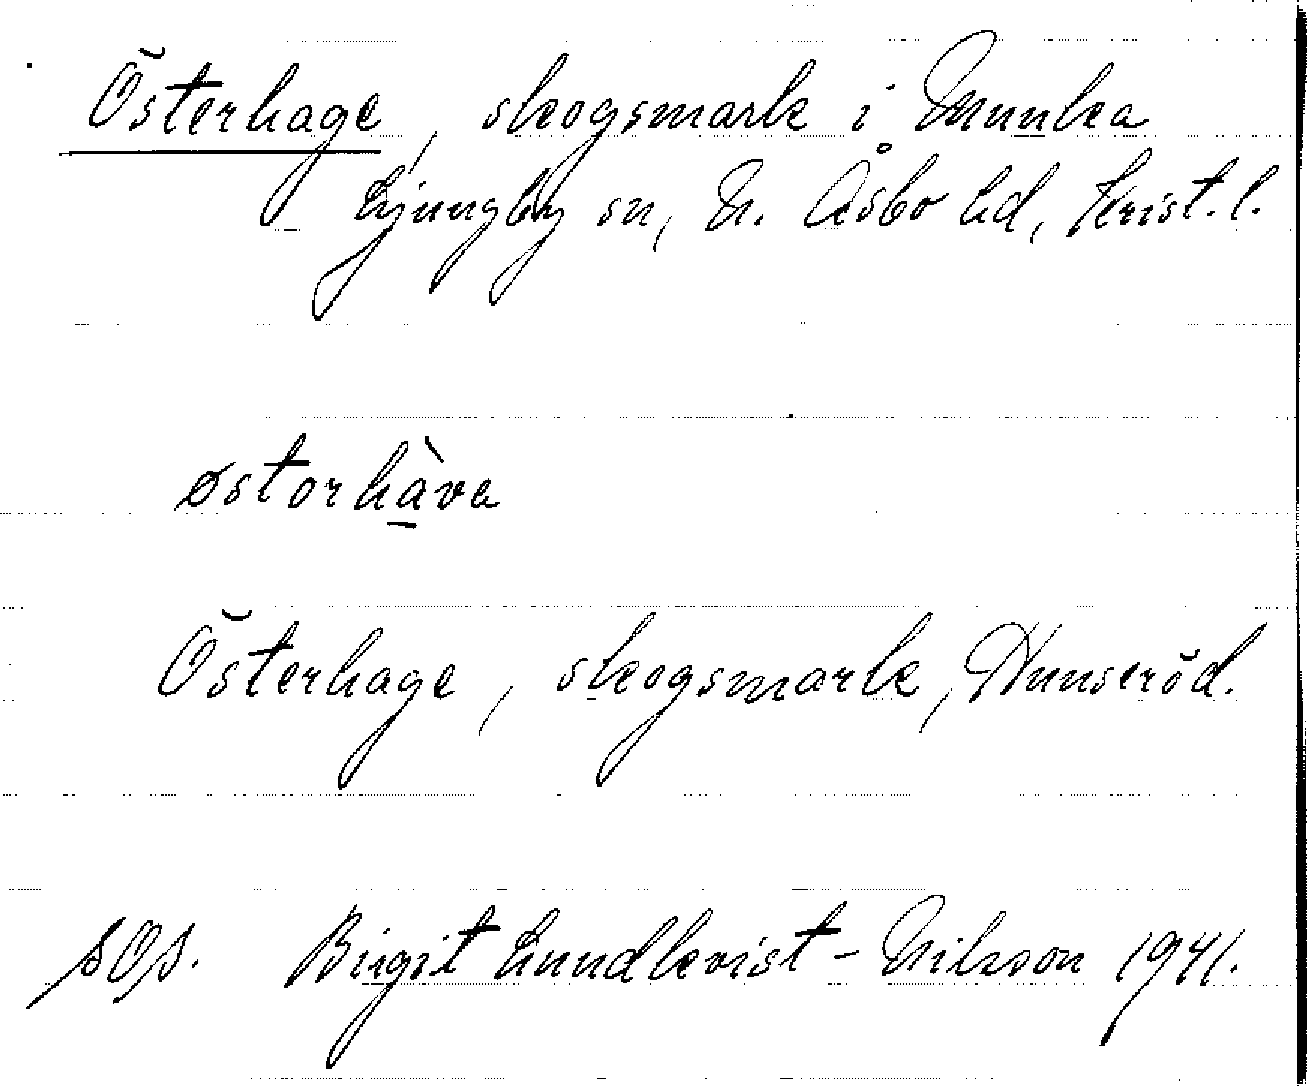 Österhage, skogsmark i Munka
Ljungby sn, N. Åsbo hd, Krist. l.
østorhàva
Österhage, skogsmark, Hunseröd.
sOs. Birgit Lundkvist - Nilsson 1941.